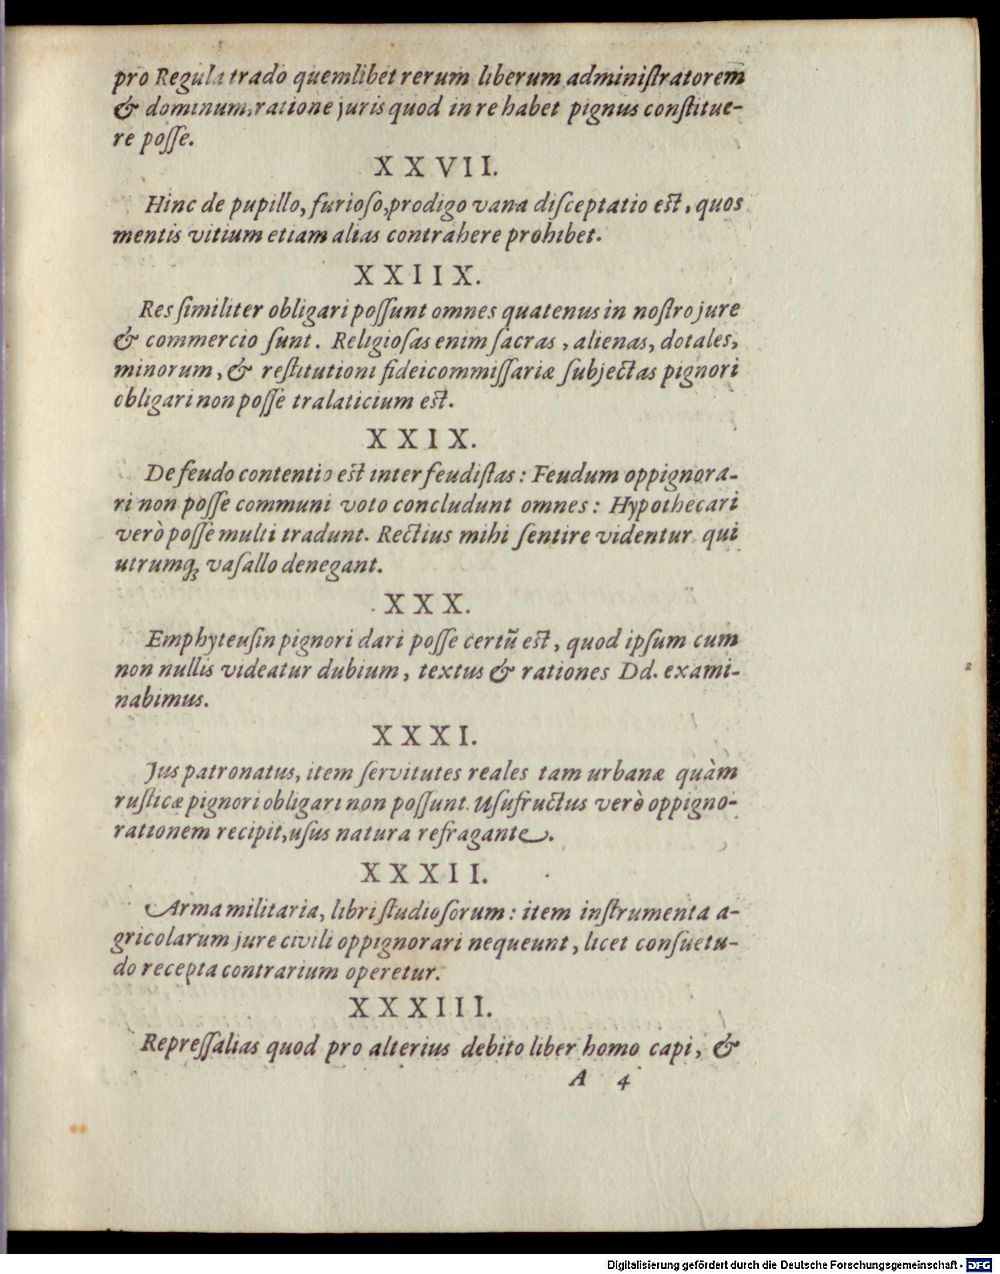 pro Regula trado quemlibet rerum liberum adminiſtratorem
& dominum, ratione juris quod in re habet pignus conſtitue-
re poſſe.
XXVII.
Hinc de pupillo, furioſo, prodigo vana diſceptatio eſt, quos
mentis vitium etiam alias contrahere prohibet.
XXIIX.
Res ſimiliter obligari poſſunt omnes quatenus in noſtro jure
& commercio ſunt. Religioſas enim ſacras, alienas, dotales,
minorum, & reſtitutioni fideicommiſſariæ ſubjectas pignori
obligari non poſſe tralaticium eſt.
XXIX.
De feudo contentio eſt inter feudiſtas: Feudum oppignora-
ri non poſſe communi voto concludunt omnes: Hypothecari
verò poſſe multi tradunt. Rectius mihi ſentire videntur qui
utrumq́; vaſallo denegant.
XXX.
Emphyteuſin pignori dari poſſe certũ eſt, quod ipſum cum
non nullis videatur dubium, textus & rationes Dd. exami-
nabimus.
XXXI.
Jus patronatus, item ſervitutes reales tam urbanæ quàm
ruſticæ pignori obligari non poſſunt. Uſufructus verò oppigno-
rationem recipit, uſus natura refragante.
XXXII.
Arma militaria, libri ſtudioſorum: item inſtrumenta a-
gricolarum jure civili oppignorari nequeunt, licet conſuetu-
do recepta contrarium operetur.
XXXIII.
Repreſſalias quod pro alterius debito liber homo capi, &
A 4
Digitalisierung gefördert durch die Deutsche Forschungsgemeinschaft - DFG